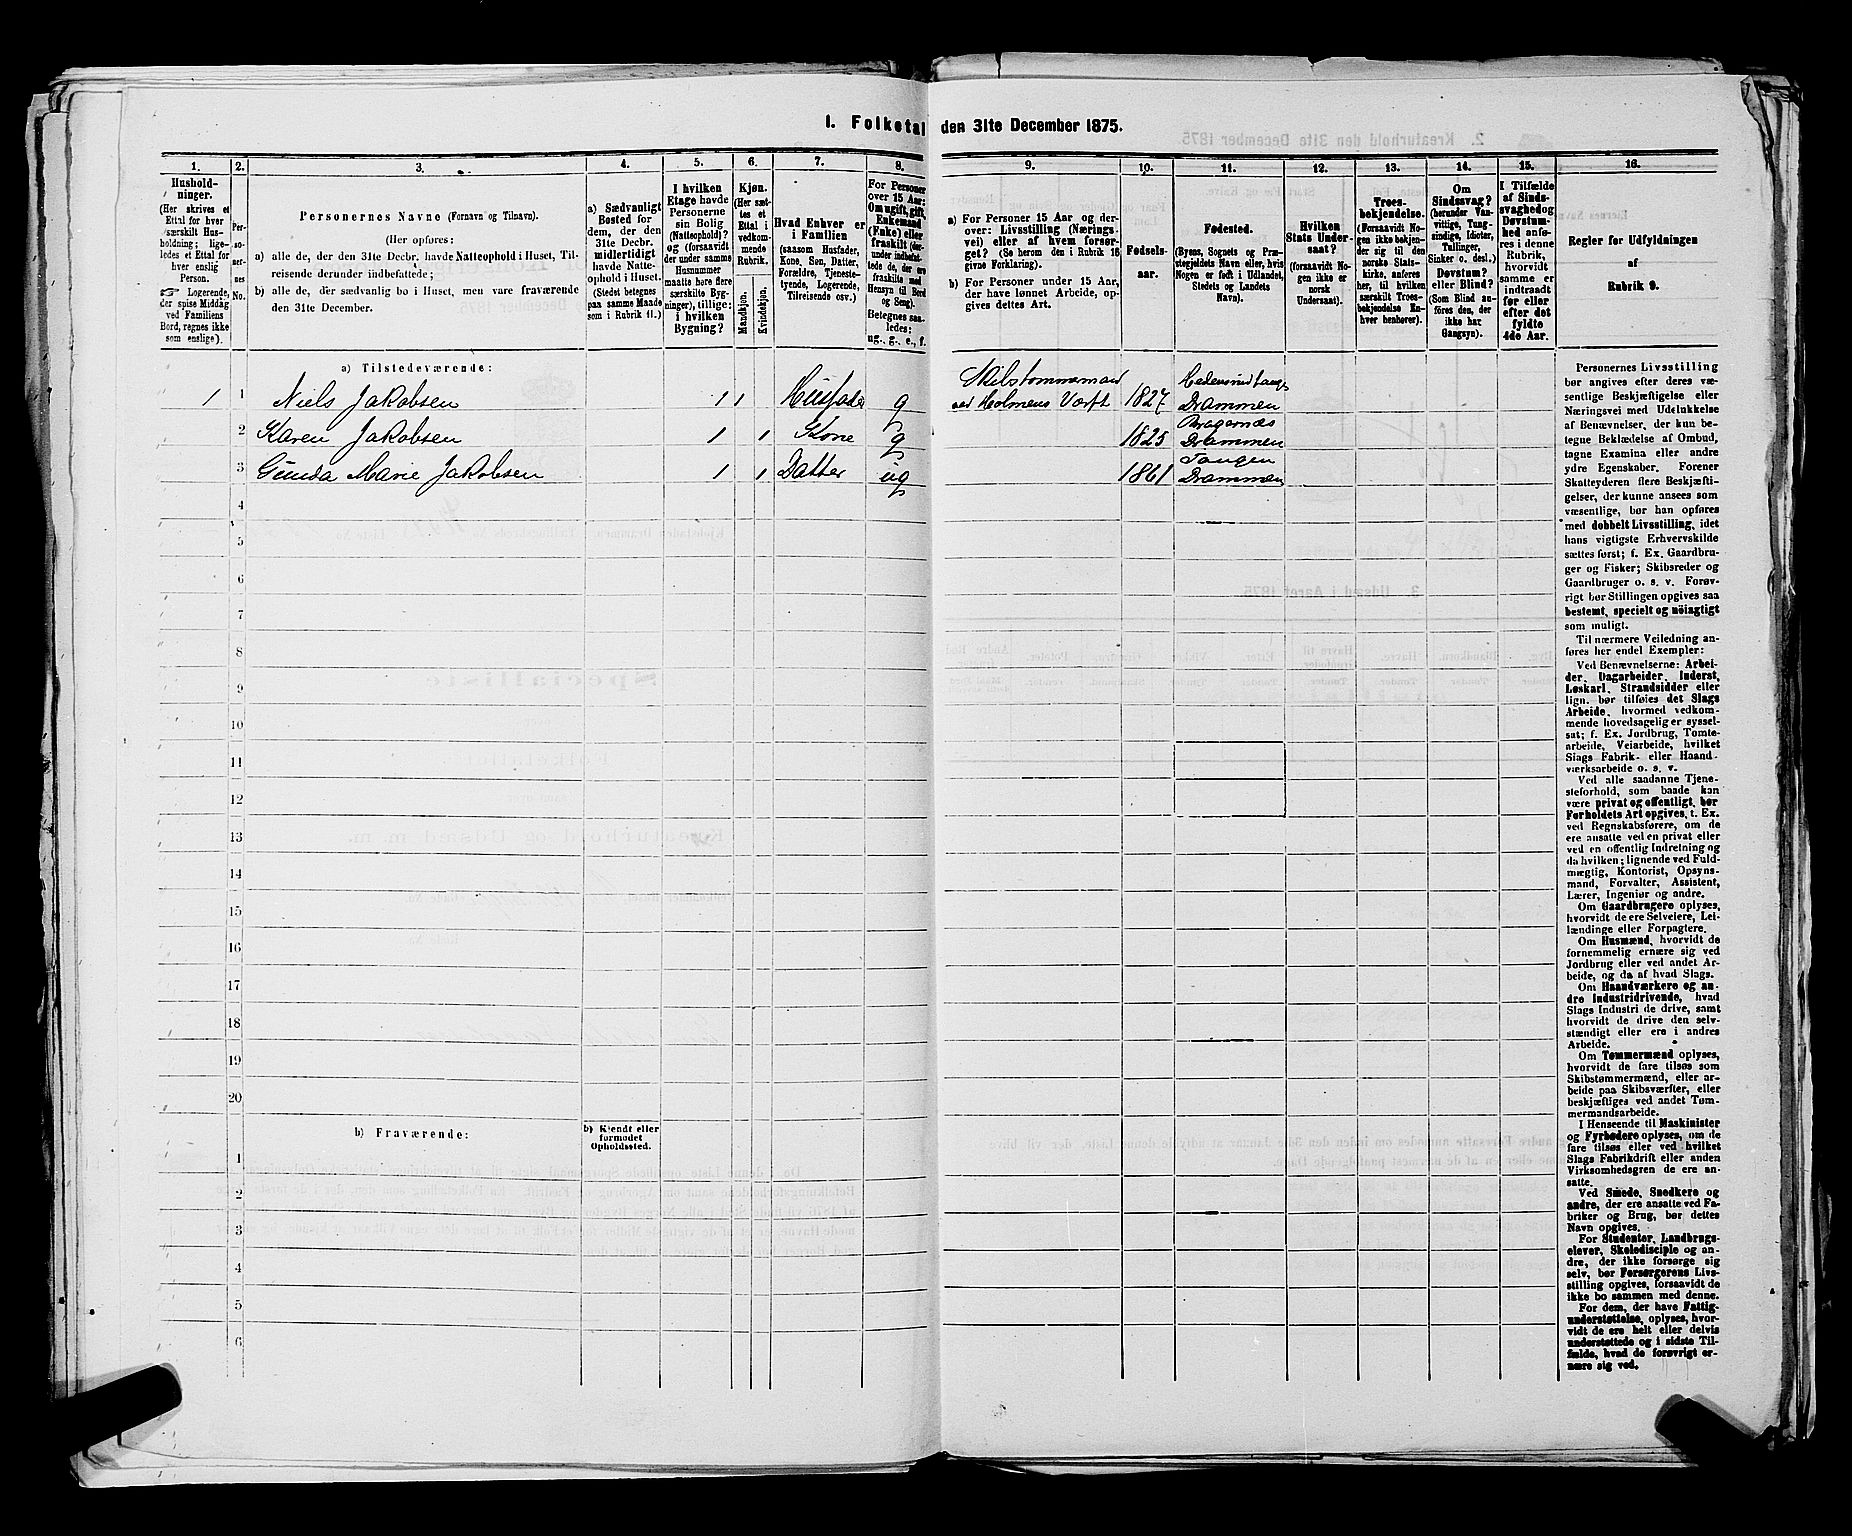 I. Folketal den 31te December 1875.
1. 2. 3. 4. 5. 6. 7. 8. 9. 10. 11. 12. 13. 14. 15. 16.
Hushold-
ninger.
(Her skrives et
Ettal for hver
særskilt Hus-
holdning; lige-
ledes et Ettal for
hver enslig
Person.
☞ Logerende,
der spise Middag
ved Familiens
Bord, regnes ikke
som enslige).
Per-
so-
ner-
nes
No.
Personernes Navne (Fornavn og Tilnavn).
(Her opføres:
a) alle de, der den 31te Decbr. havde Natteophold i Huset, Til-
reisende derunder indbefattede;
b) alle de, der sædvanlig bo i Huset, men vare fraværende
den 31te December.
a) Sædvanligt
Bosted for
dem, der den
31te Decbr.
midlertidigt
havde Natte-
ophold i Huset.
(Stedet betegnes
paa samme Maade
som i Rubrik 11.)
I hvilken
Etage havde
Personerne
sin Bolig
(Natteophold)?
og (forsaavidt
der under samme
Husnummer
maatte høre flere
særskilte Byg-
ninger), tillige:
i hvilken
Bygning?
Kjøn.
(Her sæt-
tes et
Ettal i
vedkom-
mende
Rubrik.
Mandkjøn.
Kvindekjøn.
Hvad Enhver er
i Familien
(saasom Husfader,
Kone, Søn, Datter,
Forældre, Tjeneste-
tyende, Logerende,
Tilreisende osv.)
For Personer
over 15 Aar:
Om ugift, gift,
Enkemand
(Enke) eller
fraskilt (der-
under indbefat-
tede de, der ere
fraskilte med
Hensyn til Bord
og Seng).
Betegnes saa-
ledes:
ug., g., e., f.
a) For Personer 15 Aar og der-
over: Livsstilling (Nærings-
vei) eller af hvem forsør-
get? (Se herom den i Rubrik 16
givne Forklaring).
b) For Personer under 15 Aar,
der have lønnet Arbeide, op-
gives dettes Art.
Fødsels-
aar.
Fødested.
(Byens, Sognets og Præ-
stegjeldets Navn eller, hvis
Nogen er født i Udlandet,
Stedets og Landets
Navn).
Hvilken
Stats Under-
saat?
(forsaavidt No-
gen ikke er
norsk
Undersaat).
Troes-
bekjendelse.
(Forsaavidt No-
gen ikke bekjen-
der sig til den
norske Stats-
kirke, anføres
her, til hvilken
særskilt Troes-
bekjendelse En-
hver henhører).
Om
Sindssvag?
(herunder Van-
vittige, Tung-
sindige, Idioter,
Tullinger,
Sinker o. desl.)
Døvstum?
eller Blind?
(Som Blind an-
føres den, der
ikke har
Gangsyn).
I Tilfælde
af Sinds-
svaghed og
Døvstum-
hed anfø-
res i denne
Rubrik,
hvorvidt
samme er
indtraadt
før eller
efter det
fyldte
4de Aar.
Regler for Udfyldningen
af
Rubrik 9.
a) Tilstedeværende:
1 1 Niels Jakobsen 1 1 Husfader g Skibstømmemand ved Holmens Værft 1827 Drammen
2 Karen Jakobsen 1 1 Kone g 1825 Bragernæs Drammen
3 Gunda Marie Jakobsen 1 1 Datter ug 1861 Tangen Drammen
4
5
6
7
8
9
10
11
12
13
14
15
16
17
18
19
20
b) Fraværende:
b) Kjendt eller
formodet
Opholdssted.
1
2
3
4
5
6
Personernes Livsstilling
bør angives efter deres væ-
sentlige Beskjæftigelse eller
Næringsvei med Udelukkelse
af Benævnelser, der kun be-
tegne Beklædelse af Ombud,
tagne Examina eller andre
ydre Egenskaber. Forener
Skatteyderen flere Beskjæfti-
gelser, der kunne ansees som
væsentlige, bør han opføres
med dobbelt Livsstilling, idet
hans vigtigste Erhvervskilde
sættes først; f. Ex. Gaardbru-
ger og Fisker; Skibsreder og
Gaardbruger o. s. v. Forøv-
rigt bør Stillingen opgives saa
bestemt, specielt og nöiagtigt
som muligt.
Til nærmere Veiledning an-
føres her endel Exempler:
Ved Benævnelserne: Arbei-
der, Dagarbeider, Inderst,
Løskarl, Strandsidder eller
lign. bør tilføies det Slags
Arbeide, hvormed vedkom-
mende hovedsagelig er syssel-
sat; f. Ex. Jordbrug, Tomte-
arbeide, Veiarbeide, hvilket
Slags Fabrik- eller Haand-
værksarbeide o. s. v.
Ved alle saadanne Tjene-
steforhold, som baade kan
være privat og offentligt, bør
Forholdets Art opgives, t. Ex.
ved Regnskabsførere, om de
ere ansatte ved en privat eller
ved en offentlig Indretning og
da hvilken; lignende ved Fuld-
mægtig, Kontorist, Opsyns-
mand, Forvalter, Assistent,
Lærer, Ingeniør og andre.
Om Gaardbrugere oplyses,
hvorvidt de ere Selveiere, Lei-
lændinge eller Forpagtere.
Om Husmænd, hvorvidt de
fornemmelig ernære sig ved
Jordbrug eller ved andet Ar-
beide, og da af hvad Slags.
Om Haandværkere og an-
dre Industridrivende, hvad
Slags Industri de drive, samt
hvorvidt de drive den selv-
stændigt eller ere i andres
Arbeide.
Om Tømmermænd oplyses,
hvorvidt de fare tilsøs som
Skibstømmermænd, eller ar-
beide paa Skibsværfter, eller
beskjæftiges ved andet Tøm-
mermandsarbeide.
I Henseende til Maskinister
og Fyrbødere oplyses, om de
fare tilsøs eller ved hvilket
Slags Fabrikdrift eller anden
Virksomhedsgren de ere an-
satte.
Ved Smede, Snedkere og
andre, der ere ansatte ved Fa-
briker og Brug, bør dettes
Navn opgives.
For Studenter, Landbrugs-
elever, Skoledisciple og an-
dre, der ikke forsørge sig
selv, bør Forsørgerens Livs-
stilling opgives, forsaavidt de
ikke bo sammen med denne.
For dem, der have Fattig-
understøttelse, oplyses, hvor-
vidt de ere helt eller delvis
understøttede og i sidste Til-
fælde, hvad de forøvrigt er-
nære sig ved.